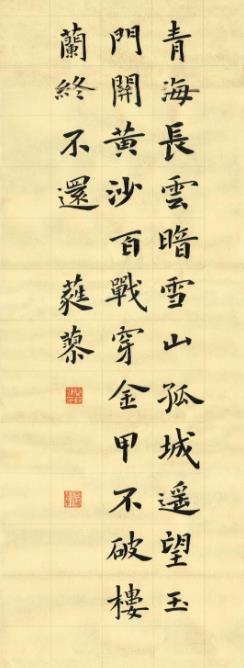 青海長雲暗雪山孤城遥望玉
門關黃沙百戰穿金甲不破樓
蘭終不還